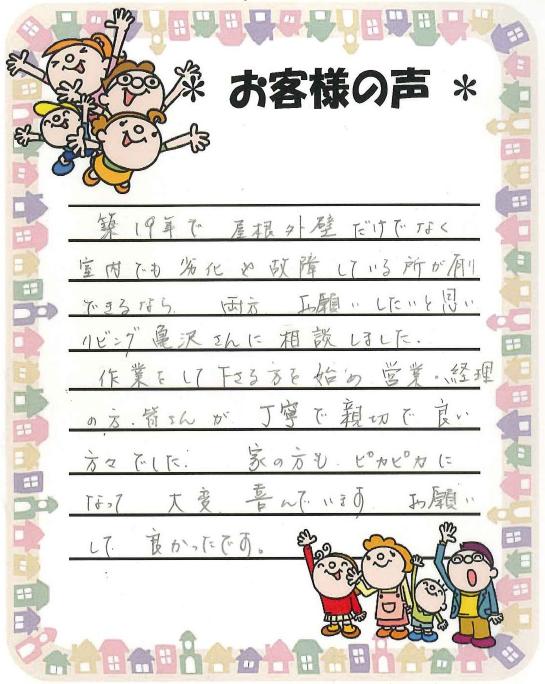 ＊ お客様の声 ＊
築19年で 屋根外壁だけでなく
室内でも 劣化や故障している所が
できるなら、両方 お願いしたいと思い
リビング亀沢さんに 相談しました.
作業をして下さる方を始め 営業・経理
の方.皆さんが 丁寧で親切で良い
方々でした. 家の方も ピカピカに
なって 大変 喜んでいます お願い
して 良かったです。